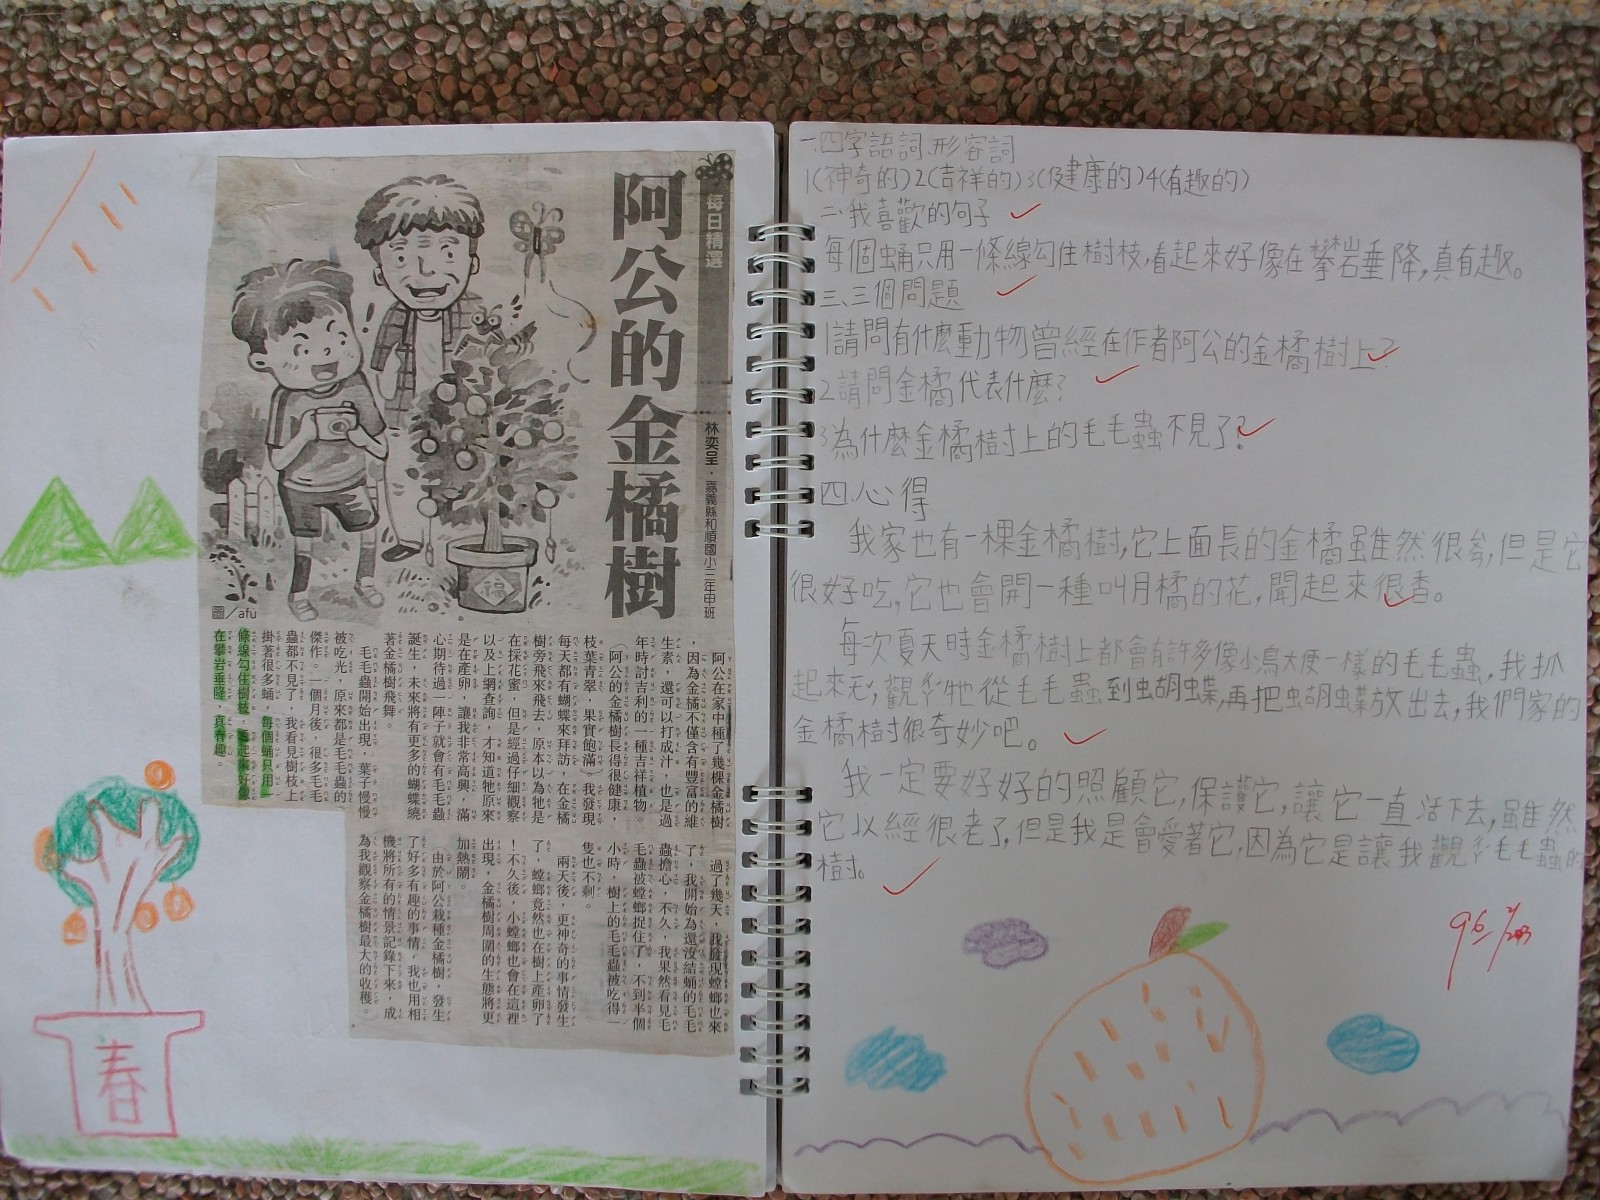 每日精選
阿公的金橘樹
林奕呈．嘉義縣和順國小二年甲班
圖／afu
福
阿公在家中種了幾棵金橘樹
，因為金橘不僅含有豐富的維
生素，還可以打成汁，也是過
年時討吉利的一種吉祥植物。
阿公的金橘樹長得很健康，
枝葉青翠，果實飽滿，我發現
每天都有蝴蝶來拜訪，在金橘
樹旁飛來飛去，原本以為牠是
在採花蜜，但是經過仔細觀察
以及上網查詢，才知道牠原來
是在產卵，讓我非常高興，滿
心期待過一陣子就會有毛毛蟲
誕生，未來將有更多的蝴蝶繞
著金橘樹飛舞。
毛毛蟲開始出現，葉子慢慢
被吃光，原來都是毛毛蟲的
傑作。一個月後，很多毛毛
蟲都不見了，我看見樹枝上
掛著很多蛹，每個蛹只用一
條線勾住樹枝，看起來好像
在攀岩垂降，真有趣。
過了幾天，我發現螳螂也來
了，我開始為還沒結蛹的毛毛
蟲擔心，不久，我果然看見毛
毛蟲被螳螂捉住了，不到半個
小時，樹上的毛毛蟲被吃得一
隻也不剩。
兩天後，更神奇的事情發生
了，螳螂竟然也在樹上產卵了
！不久後，小螳螂也會在這裡
出現，金橘樹周圍的生態將更
加熱鬧。
由於阿公栽種金橘樹，發生
了好多有趣的事情，我也用相
機將所有的情景記錄下來，成
為我觀察金橘樹最大的收穫。
春
一.四字語詞、形容詞
1(神奇的)2(吉祥的)3(健康的)4(有趣的)
二、我喜歡的句子
每個蛹只用一條線勾住樹枝,看起來好像在攀岩垂降,真有趣。
三、三個問題
1請問有什麼動物曾經在作者阿公的金橘樹上?
2請問金橘代表什麼?
3為什麼金橘樹上的毛毛蟲不見了?
四.心得
我家也有一棵金橘樹,它上面長的金橘雖然很,但是它
很好吃,它也會開一種叫月橘的花,聞起來很香。
每次夏天時金橘樹上都會有許多像小鳥大便一樣的毛毛蟲,我抓
起來,觀牠從毛毛蟲到蝴蝶,再把蝴蝶放出去,我們家的
金橘樹很奇妙吧。
我一定要好好的照顧它,保護它,讓它一直活下去,雖然
它以經很老了,但是我是會愛著它,因為它是讓我觀毛毛蟲的
樹。
96